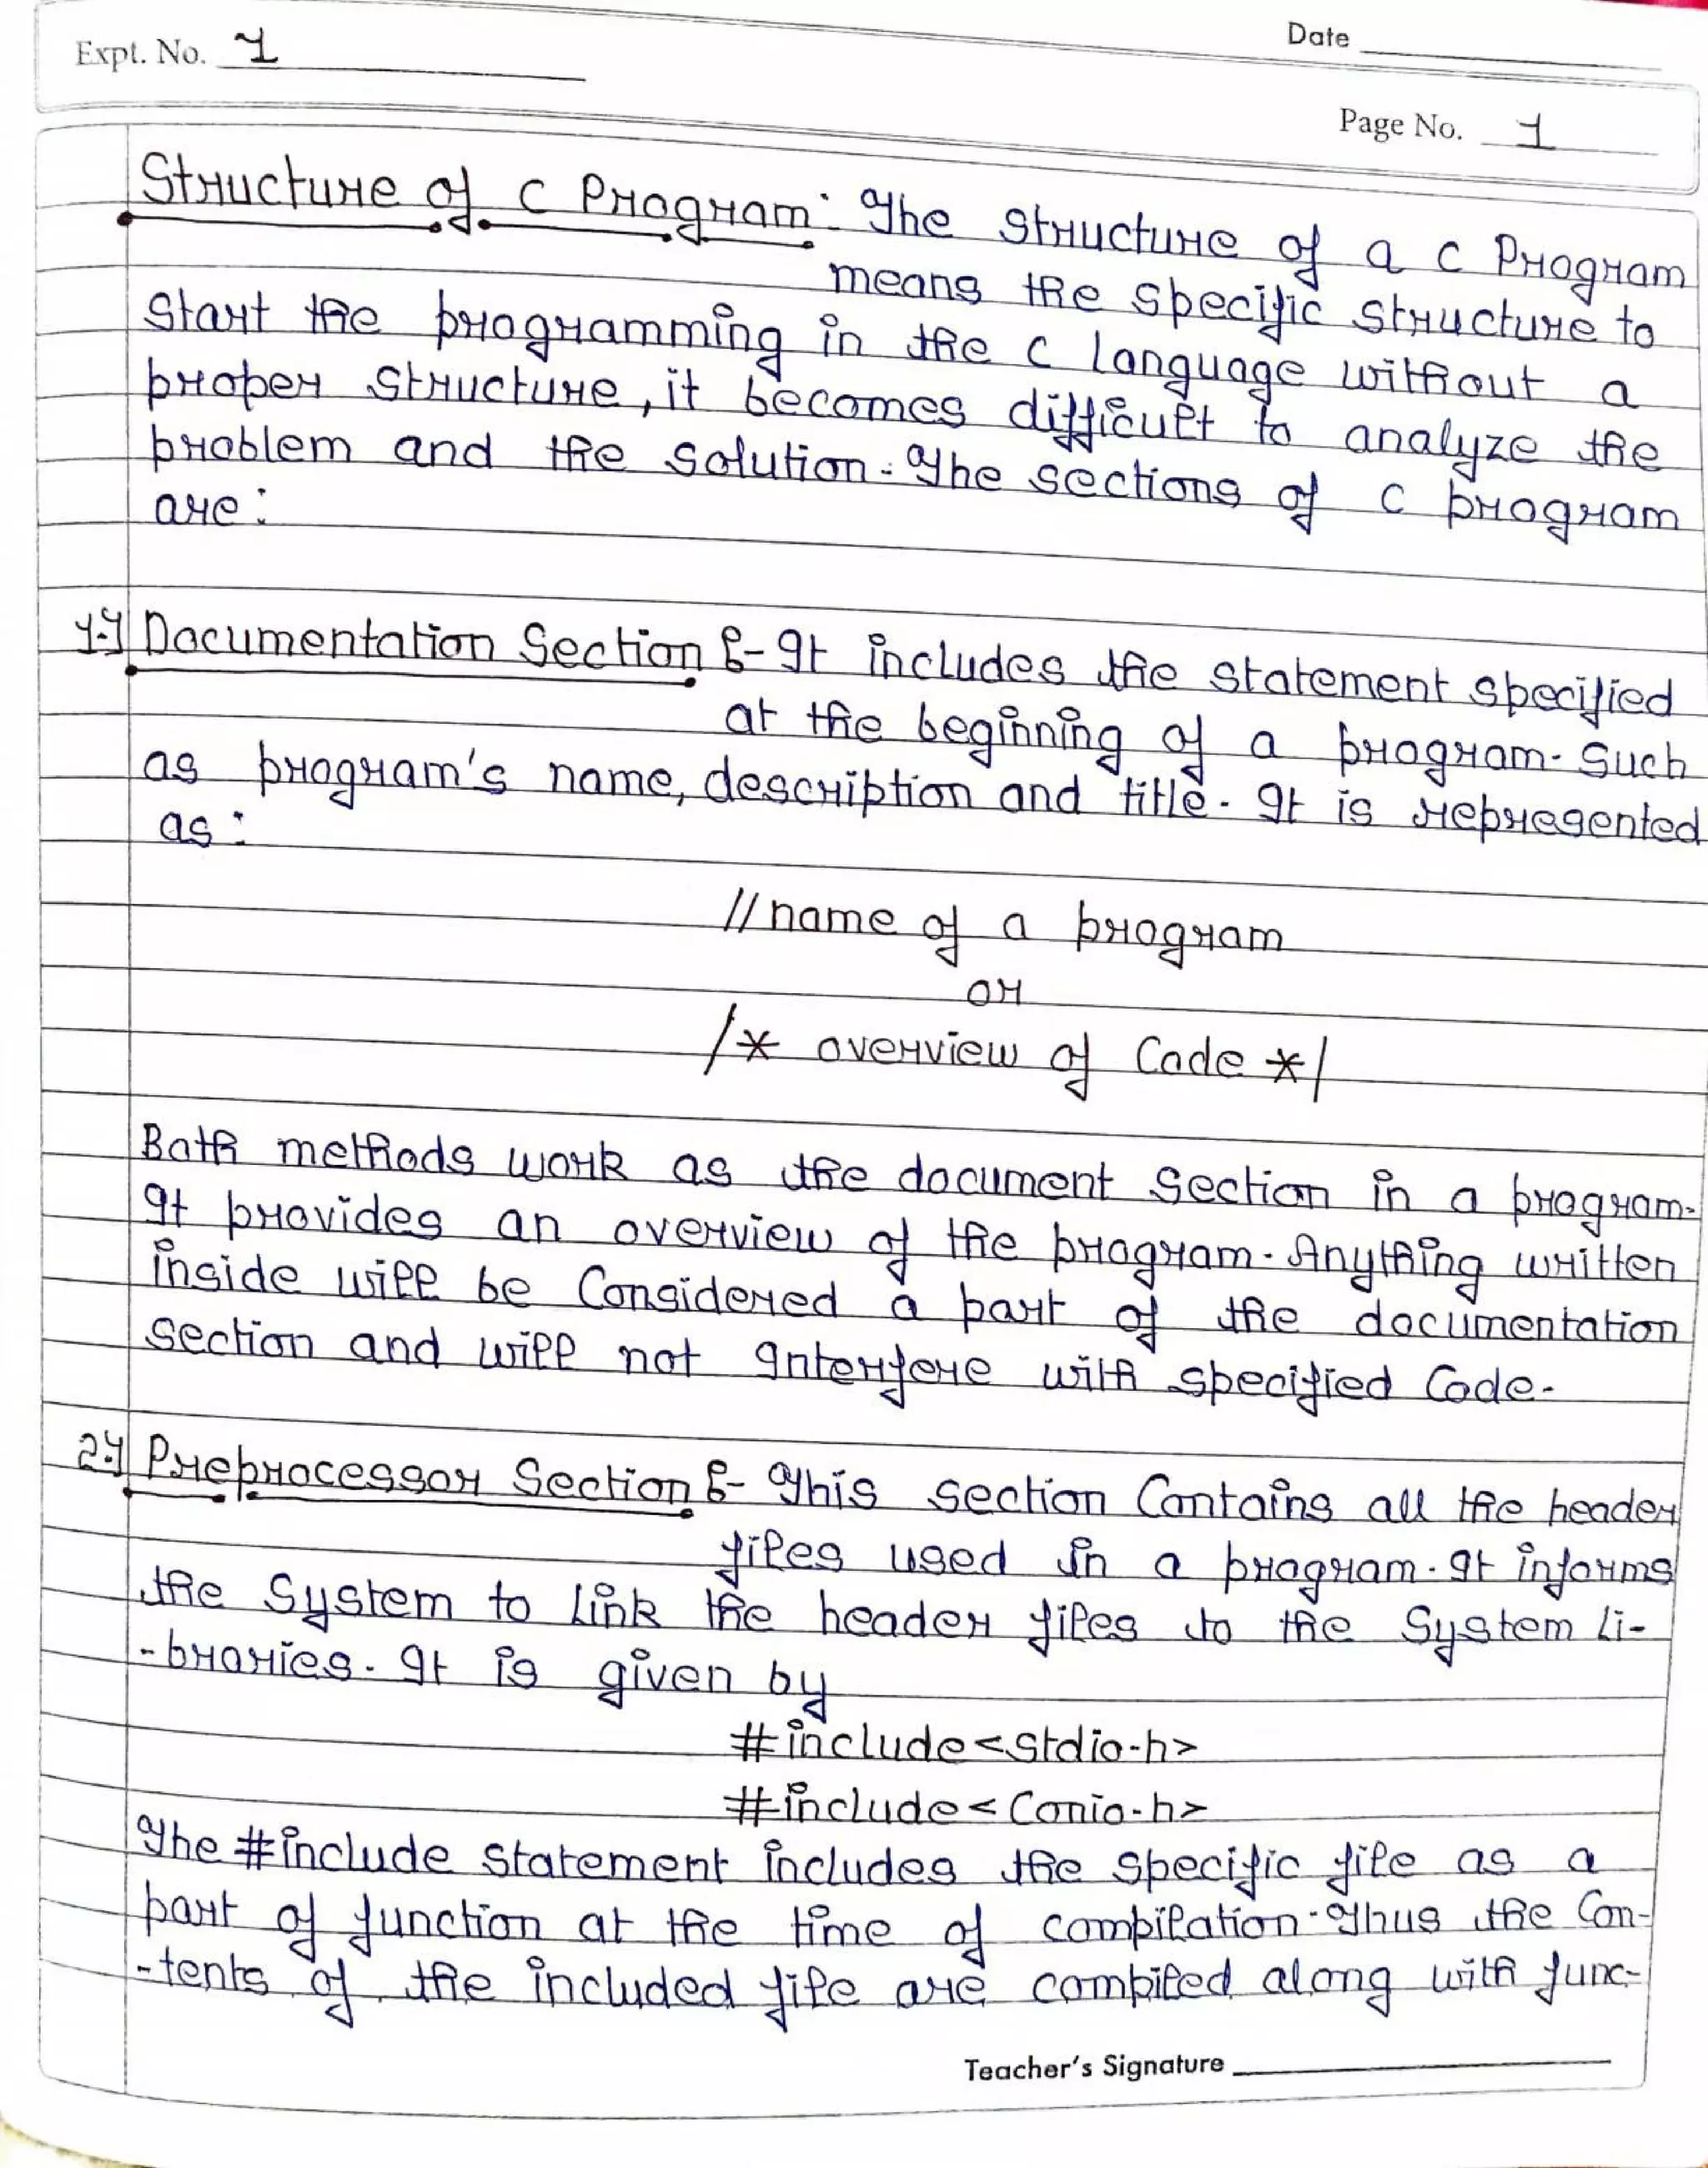 Expt. No. 1
Date
Page No. 1
Structure of C Program: The structure of a C Program
means the specific structure to
start the programming in the C language without a
proper structure, it becomes difficult to analyze the
problem and the solution. The sections of C program
are:
1.) Documentation Section :- It includes the statement specified
at the beginning of a program. Such
as program's name, description and title. It is represented
as:
//name of a program
or
/* overview of Code */
Both methods work as the document section in a program.
It provides an overview of the program. Anything written
inside will be Considered a part of the documentation
section and will not Interfere with specified Code.
2.) Preprocessor Section :- This section Contains all the header
files used in a program. It informs
the System to Link the header files to the System Li-
-braries. It is given by
#include<stdio.h>
#include<Conio.h>
The #include statement includes the specific file as a
part of function at the time of compilation. Thus the Con-
-tents of the included file are compiled along with func-
Teacher's Signature